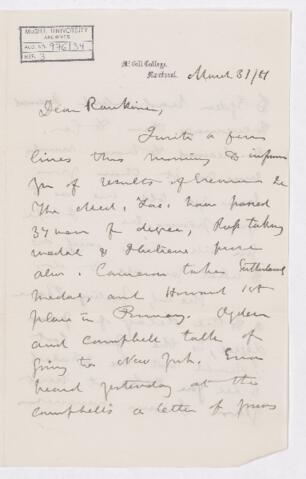 McGILL UNIVERSITY
ARCHIVES
ACC. NO. 976/34
REF. 3
McGill College,
Montreal.
March 31/81
Dear Rankine,
I write a few
lines this morning to inform
you of results of Exams &c
The Med. Fac. have passed
37 men for degree, Ross taking
medal & Holmes prize
also. Cameron takes Sutherland
medal, and Howard 1st
place in Primary. Ogden
and Campbell talk of
going to New York. 
heard yesterday at the
Campbell's a letter of yours